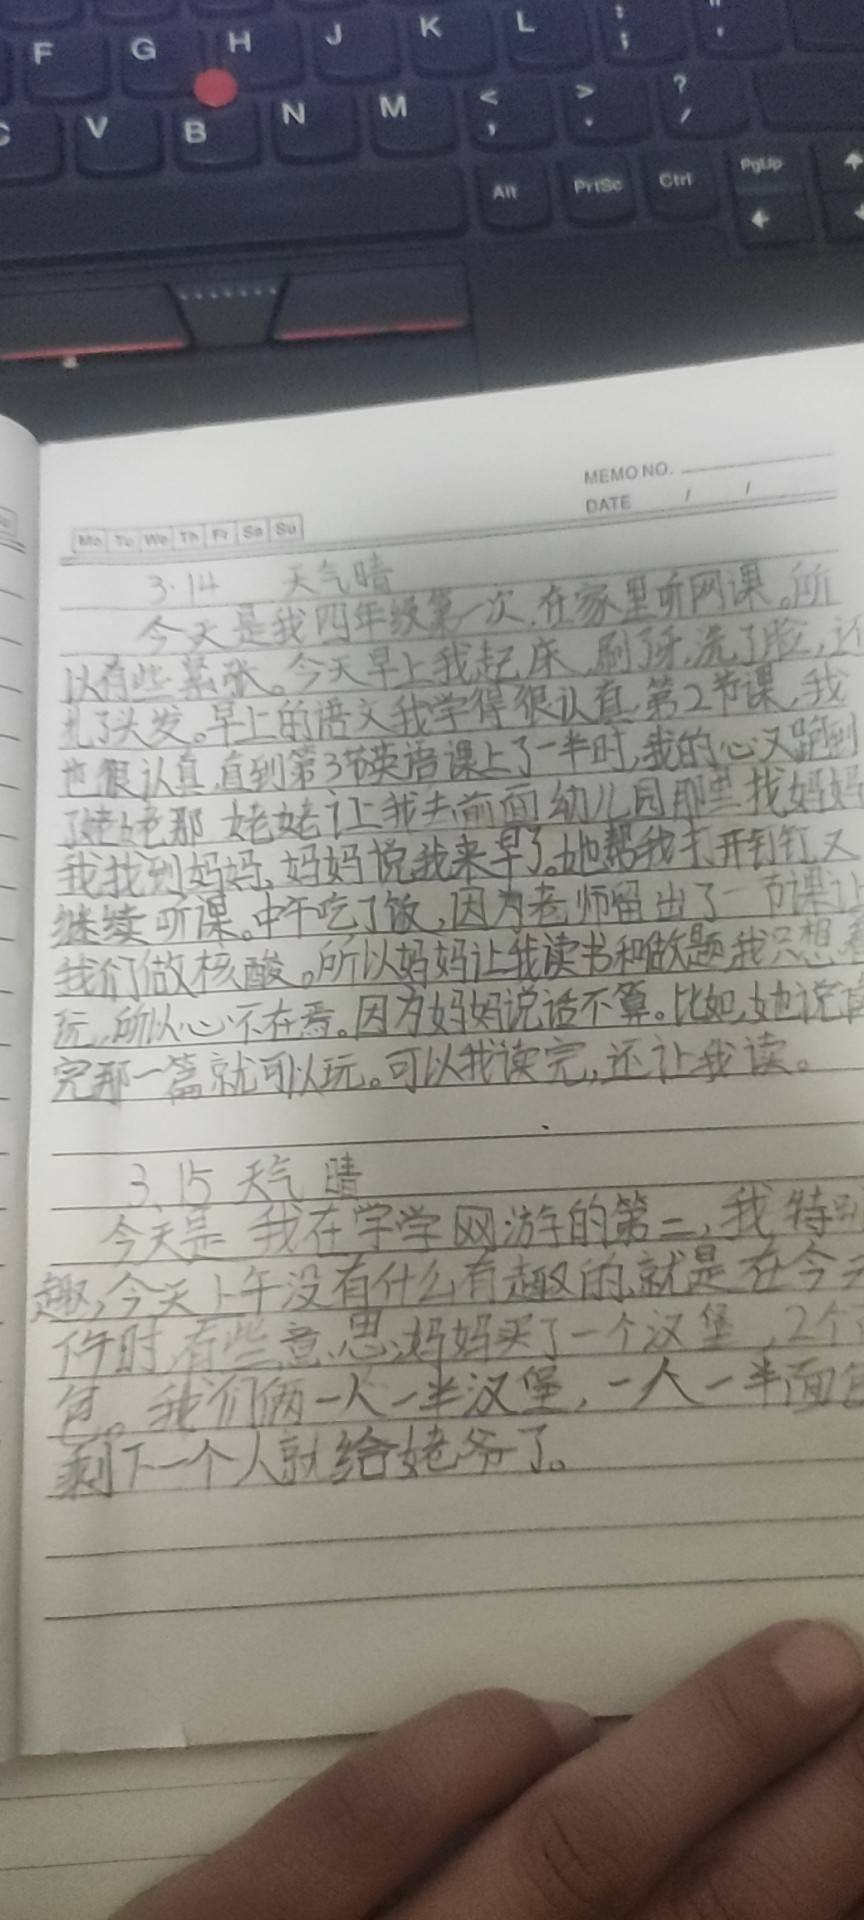 F G H J K L : ;
C V B N M < , > . ? /
Alt PrtSc Ctrl PgUp
MEMO NO.
DATE / /
Mo Tu We Th Fr Sa Su
3.14 天气晴
今天是我四年级第一次,在家里听网课。所
以有些紧张。今天早上我起床,刷了牙,洗了脸,还
扎了头发。早上的语文我学得很认真,第2节课,我
也很认真,直到第3节英语课上了一半时,我的心又跑到
了姥姥那 姥姥让我去前面幼儿园那里找妈妈
我找到妈妈,妈妈说我来早了。她帮我打开钉钉又
继续听课。中午吃了饭,因为老师留出了一节课让
我们做核酸。所以妈妈让我读书和做题,我只想着
玩,所以心不在焉。因为妈妈说话不算。比如,她说
完那一篇就可以玩。可以我读完,还让我读。
3.15 天气 晴
今天是 我在学学网游的第二,我特别
趣,今天上午没有什么有趣的,就是在今天
下午时,有些意思,妈妈买了一个汉堡,2个
包。我们俩一人一半汉堡,一人一半面包
剩下一个人就给姥爷了。